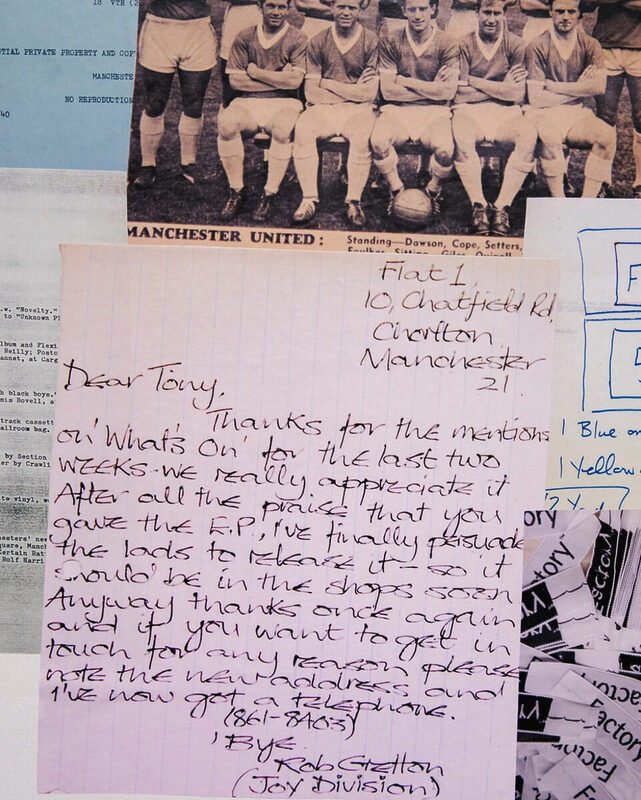 18 VTR (2
TIAL PRIVATE PROPERTY AND COP
MANCHESTE
NO REPRODUCTION
40
MANCHESTER UNITED: Standing—Dawson, Cope, Setters,
Flat 1,
10, Chatfield Rd,
Chorlton
Manchester
21.
Dear Tony,
Thanks for the mentions
on 'What's On' for the last two
weeks - we really appreciate it
After all the praise that you
gave the E.P., I've finally persuade
the lads to release it - so it
should be in the shops soon
Anyway thanks once again
and if you want to get in
touch for any reason please
note the new address and
I've now got a telephone.
(861-8403)
'Bye
Rob Gretton
(Joy Division)
.w. "Novelty."
to "Unknown P
lbum and Flexi
Reilly; Postc
annet, at Carg
h black boys."
mis Bovell, a
track cassett
allroom bag.
by Section
er by Crawli
te vinyl, w
hesters' new
quare, Manch
Certain Rat
Rolf Harri
F
1 Blue on
1 Yellow
ory
ctory"
Factory
Factory